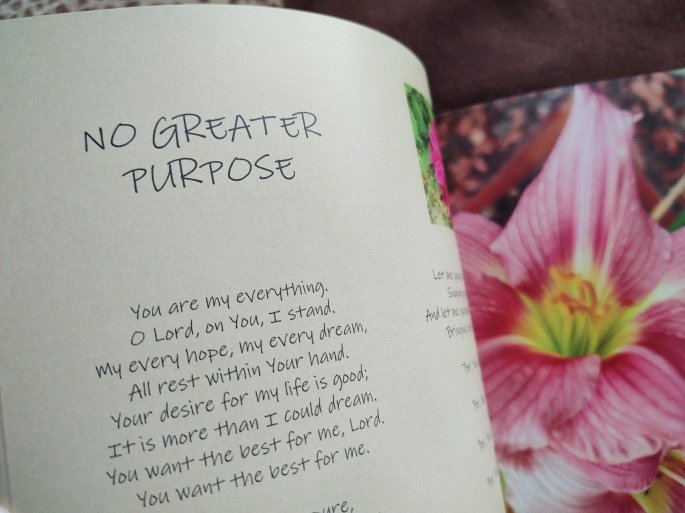 NO GREATER
PURPOSE
You are my everything.
O Lord, on You, I stand.
My every hope, my every dream,
All rest within Your hand.
Your desire for my life is good;
It is more than I could dream.
You want the best for me, Lord.
You want the best for me.
Let me
And let me